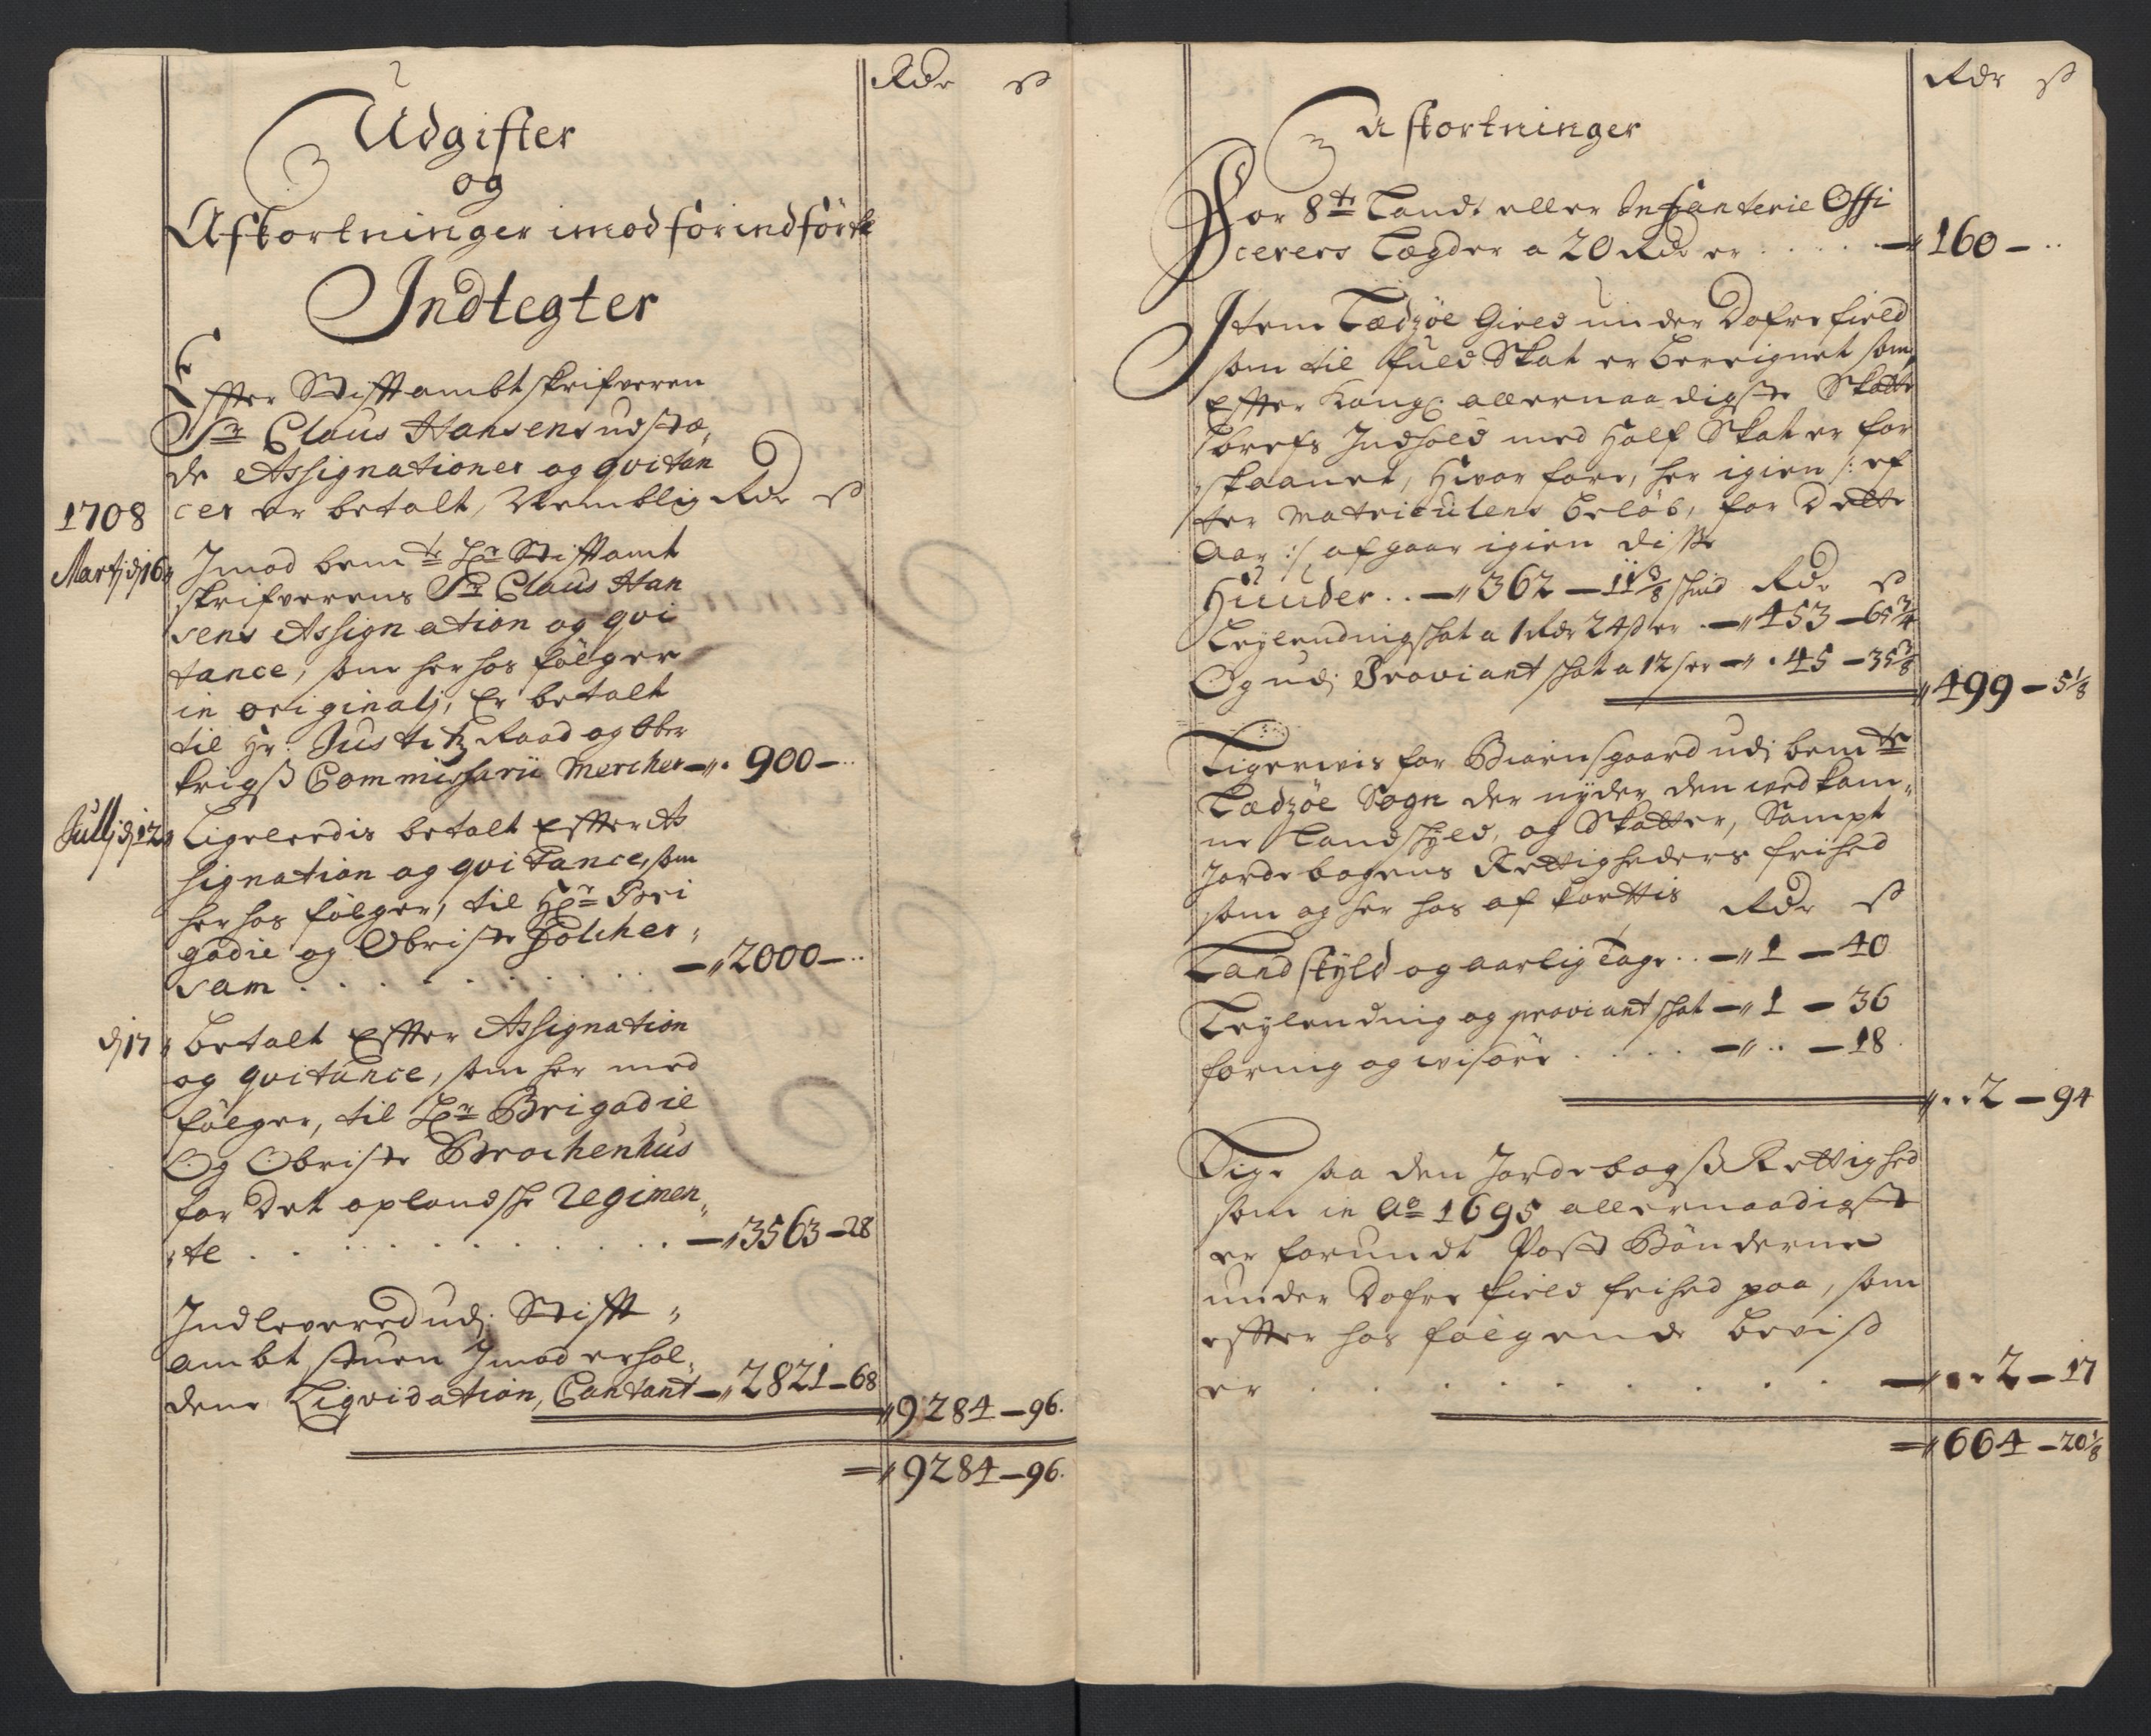 Rdr ß
Udgifter
og
Afkortninger imod forindförte
Indtegter
Effter Stifftambtskrifveren
Sr Claus Hansens udstæ,
de Assignationer og qvitan
cer er betalt, Nemblig Rdr ß
1708
Martj dj 16 Imod bemte Hr Stifftamt
skrifverens Sr Claus Han
sens Assignation og qvi
tance, som her hos fölger
in originalj, Er betalt
til Hr: Justitz Raad og Ober
krigß Commissarii Mercher 900 –
Julij dj 12 Ligeleedis betalt Effter As
signation og qvitance, som
her hos fölger, til Hr Bri
gadie og Obriste
sam . . . . . . . 2000 –
dj 17 betalt Effter Assignation
og qvitance, som her med
fölger, til Hr Brigadie
Og Obriste Brochenhus
for Det oplandsche Regimen,
te . . . . . . . . . 3563 – 28
Indlevered udj Stifft
ambt stuen Imod erhol,
dene Liqvidation, Contant 2821 – 68
9284 – 96.
9284 – 96.
Rdr ß
Afkortninger
For 8te Landt eller Infanterie Offi
cerers Lægder a 20 Rdr er . . . . 160 – ..
Item Lædzöe Gield under Dofrefield
som til fuld Skat er bereignet som,
Effter Kongl: allernaadigste Skatte
brefs Indhold med Half Skat er for
skaanet, Hvor fore, her igien /: ef
ter Matriculens belöb, for Dette
Aar :/ afgaar igien disse
Huuder . . 362 – 11 3/8 schind Rdr ß
Leylendnigschat a 1 Rdr 24 ß er . 453 – 65 3/4
Og udj Proviant schat a 12 ß er . 45 – 35 3/8
499 – 5 1/8
Ligervis for Biörnsgaard udj bemte
Lædzöe Sogn der nyder den vedkom,
ne Landskyld, og Skatter, Sampt
Jordebogens Rettigheders frihed
som og her hos af korttis Rdr ß
Landskyld og aarlig tage . . 1 – 40
Leylendnig og proviant schat 1 – 36
fornig og wisöre . . . . . . – 18.
. . 2 – 94
Lige saa den Jordebogß Rettighed
som in Ao 1695 allernaadigst
er forundt Post Bönderne
under Dofre field frihed paa, som
effter hos fölgende beviß
er . . . . . . . . . . . . 2 – 17
664 – 20 1/8